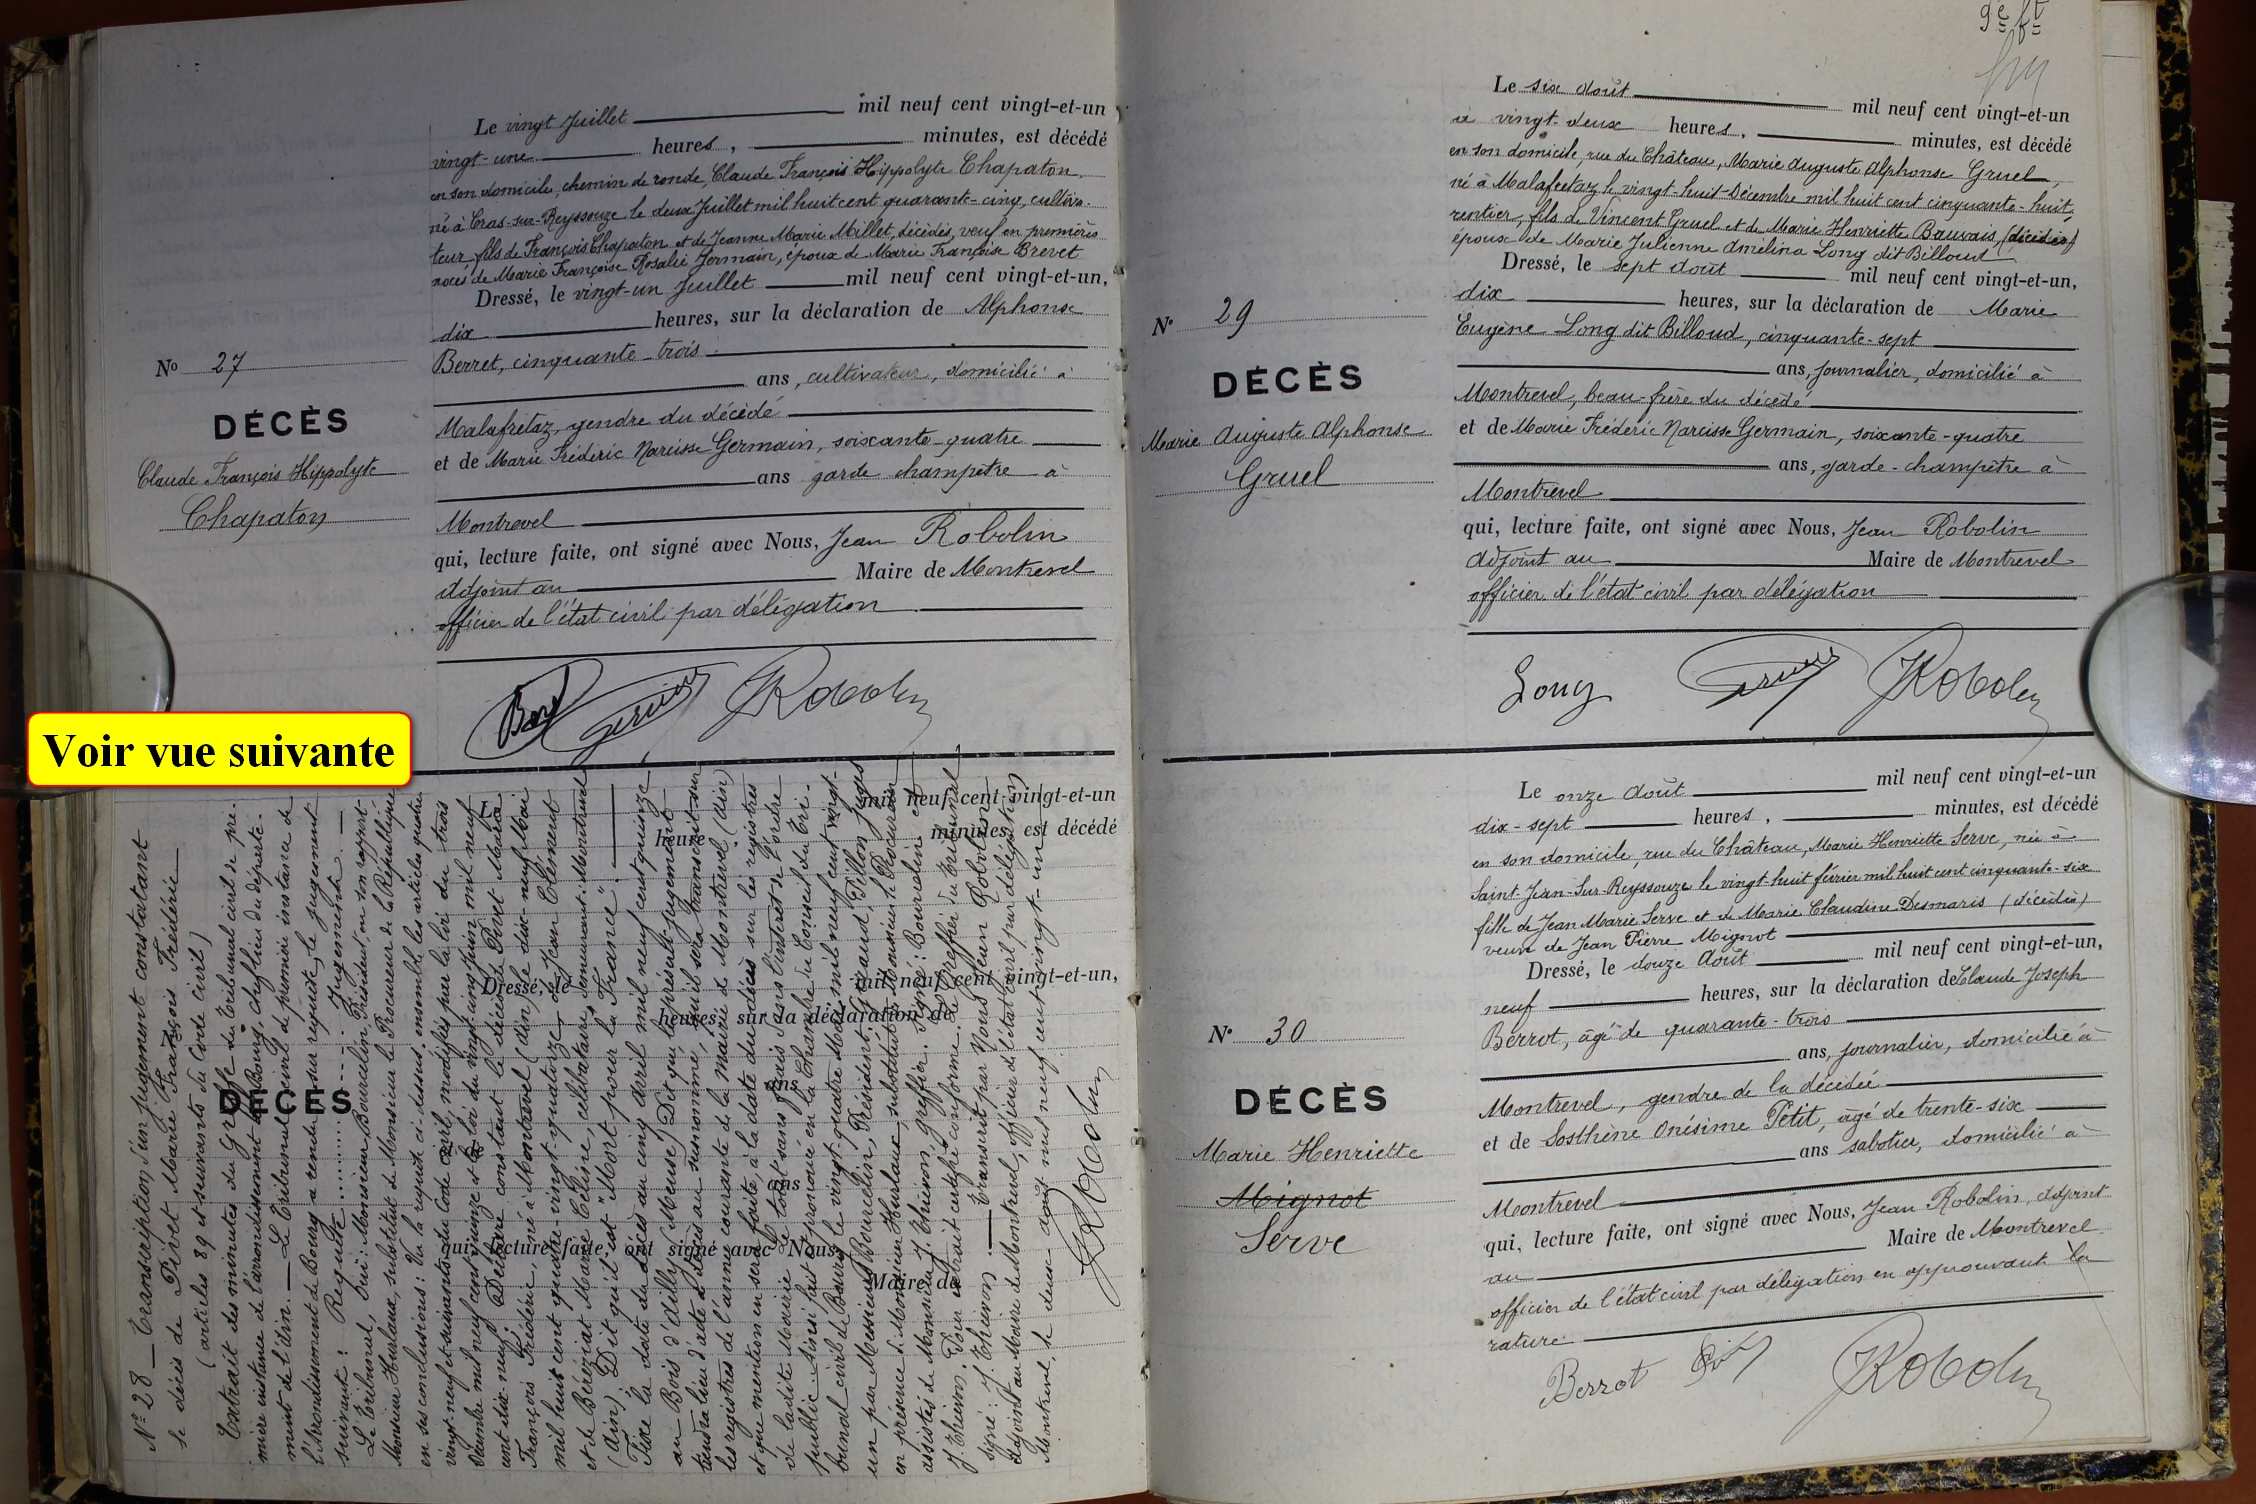 Le vingt Juillet mil neuf cent vingt-et-un
vingt-une heures, minutes, est décédé
en son domicile, chemin de ronde, Claude François Hippolyte Chapaton,
né à Cras-sur-Reyssouze le deux Juillet mil huit cent quarante-cinq, cultiva-
teur, fils de François Chapaton et de Jeanne Marie Millet, décédés, veuf en premières
noces de Marie Françoise Rosalie Germain, époux de Marie Françoise Brevet
Dressé, le vingt-un Juillet mil neuf cent vingt-et-un,
dix heures, sur la déclaration de Alphonse
Berret, cinquante-trois
ans, cultivateur, domicilié à
Malafretaz, gendre du décédé
et de Marie Frédéric Narcisse Germain, soixante-quatre
ans garde champêtre à
Montrevel
qui, lecture faite, ont signé avec Nous, Jean Robolin
adjoint au Maire de Montrevel
officier de l'état civil par délégation
No 27
DÉCÈS
Claude François Hippolyte
Chapaton
JRobolin
Voir vue suivante
N° 28 — Transcription d'un jugement constatant
le décès de Pivet Marie François Frédéric
(articles 89 et suivants du Code civil)
Extrait des minutes du Greffe du Tribunal civil de pre-
mière instance de l'arrondissement de Bourg, chef-lieu du départe-
ment de l'Ain. — Le Tribunal civil de première instance de
l'Arrondissement de Bourg a rendu sur requête, le jugement
suivant: Requête Jugement
Le Tribunal, Ouï: Monsieur Bourcelin, Président, en son rapport
Monsieur Hurlaux, substitut de Monsieur le Procureur de la République
en ses conclusions: Vu la requête ci-dessus, ensemble les articles quatre
vingt-neuf et suivants du Code civil, modifiés par la loi du trois
Décembre mil neuf cent quinze et la loi du vingt cinq Juin mil neuf
cent dix neuf. Déclare constant le décès de Pivet Marie
François Frédéric, né à Montrevel (Ain) le dix neuf Mai
mil huit cent quatre-vingt-quatorze, de Jean Clément
et de Béréziat Marie Céline, célibataire, demeurant à Montrevel
(Ain). Dit qu'il est "Mort pour la France".
Fixe la date du décès au cinq avril mil neuf cent quinze,
au Bois d'Ailly (Meuse) Dit que le présent jugement
tiendra lieu d'acte de décès au susnommé, qu'il sera transcrit sur
les registres de l'année courante de la Mairie de Montrevel (Ain)
et que mention en sera faite à la date du décès sur les registres
de ladite Mairie le tout sans frais
public. Ainsi fait et prononcé en la Chambre du Conseil du Tri-
bunal civil de Bourg le vingt quatre Mai mil neuf cent vingt-
un par Messieurs Bourcelin, Président,
en présence de Monsieur Hurlaux, substitut de Monsieur le Procureur
assistés de Monsieur J. Thévenon, Greffier. Signé: Bourcelin et
J. Thévenon. Pour extrait certifié conforme. Le Greffier du Tribunal
signé: J. Thévenon. — Transcrit par Nous Jean Robolin
Adjoint au Maire de Montrevel, officier de l'état civil par délégation
Montrevel, le deux août mil neuf cent vingt-un
JRobolin
mil neuf cent vingt-et-un
heure minutes, est décédé
Dressé, le mil neuf cent vingt-et-un,
heures, sur la déclaration de
ans
ans
qui, lecture faite, ont signé avec Nous,
Maire de
DÉCÈS
Le six Août mil neuf cent vingt-et-un
à vingt-deux heures, minutes, est décédé
en son domicile, rue du Château, Marie Auguste Alphonse Gruel,
né à Malafretaz le vingt-huit Décembre mil huit cent cinquante-huit,
rentier, fils de Vincent Gruel et de Marie Henriette Bauvais, (décédés)
époux de Marie Julienne Amélina Long dit Billoud
Dressé, le sept Août mil neuf cent vingt-et-un,
dix heures, sur la déclaration de Marie
Eugène Long dit Billoud, cinquante-sept
ans, journalier, domicilié à
Montrevel, beau-frère du décédé
et de Marie Frédéric Narcisse Germain, soixante-quatre
ans, garde-champêtre à
Montrevel
qui, lecture faite, ont signé avec Nous, Jean Robolin
Adjoint au Maire de Montrevel
officier de l'état civil par délégation
N° 29
DÉCÈS
Marie Auguste Alphonse
Gruel
Long JRobolin
Le onze Août mil neuf cent vingt-et-un
dix-sept heures, minutes, est décédé
en son domicile, rue du Château, Marie Henriette Serve, née à
Saint-Jean-Sur-Reyssouze le vingt huit février mil huit cent cinquante-six
fille de Jean Marie Serve et de Marie Claudine Desmaris (décédés)
veuve de Jean Pierre Mignot
Dressé, le douze Août mil neuf cent vingt-et-un,
neuf heures, sur la déclaration de Claude Joseph
Berrot, âgé de quarante-trois
ans, journalier, domicilié à
Montrevel, gendre de la décédée
et de Sosthène Onésime Petit, âgé de trente-six
ans sabotier, domicilié à
Montrevel
qui, lecture faite, ont signé avec Nous, Jean Robolin, adjoint
au Maire de Montrevel
officier de l'état civil par délégation en approuvant la
rature
N° 30
DÉCÈS
Marie Henriette
Mignot
Serve
Berrot JRobolin